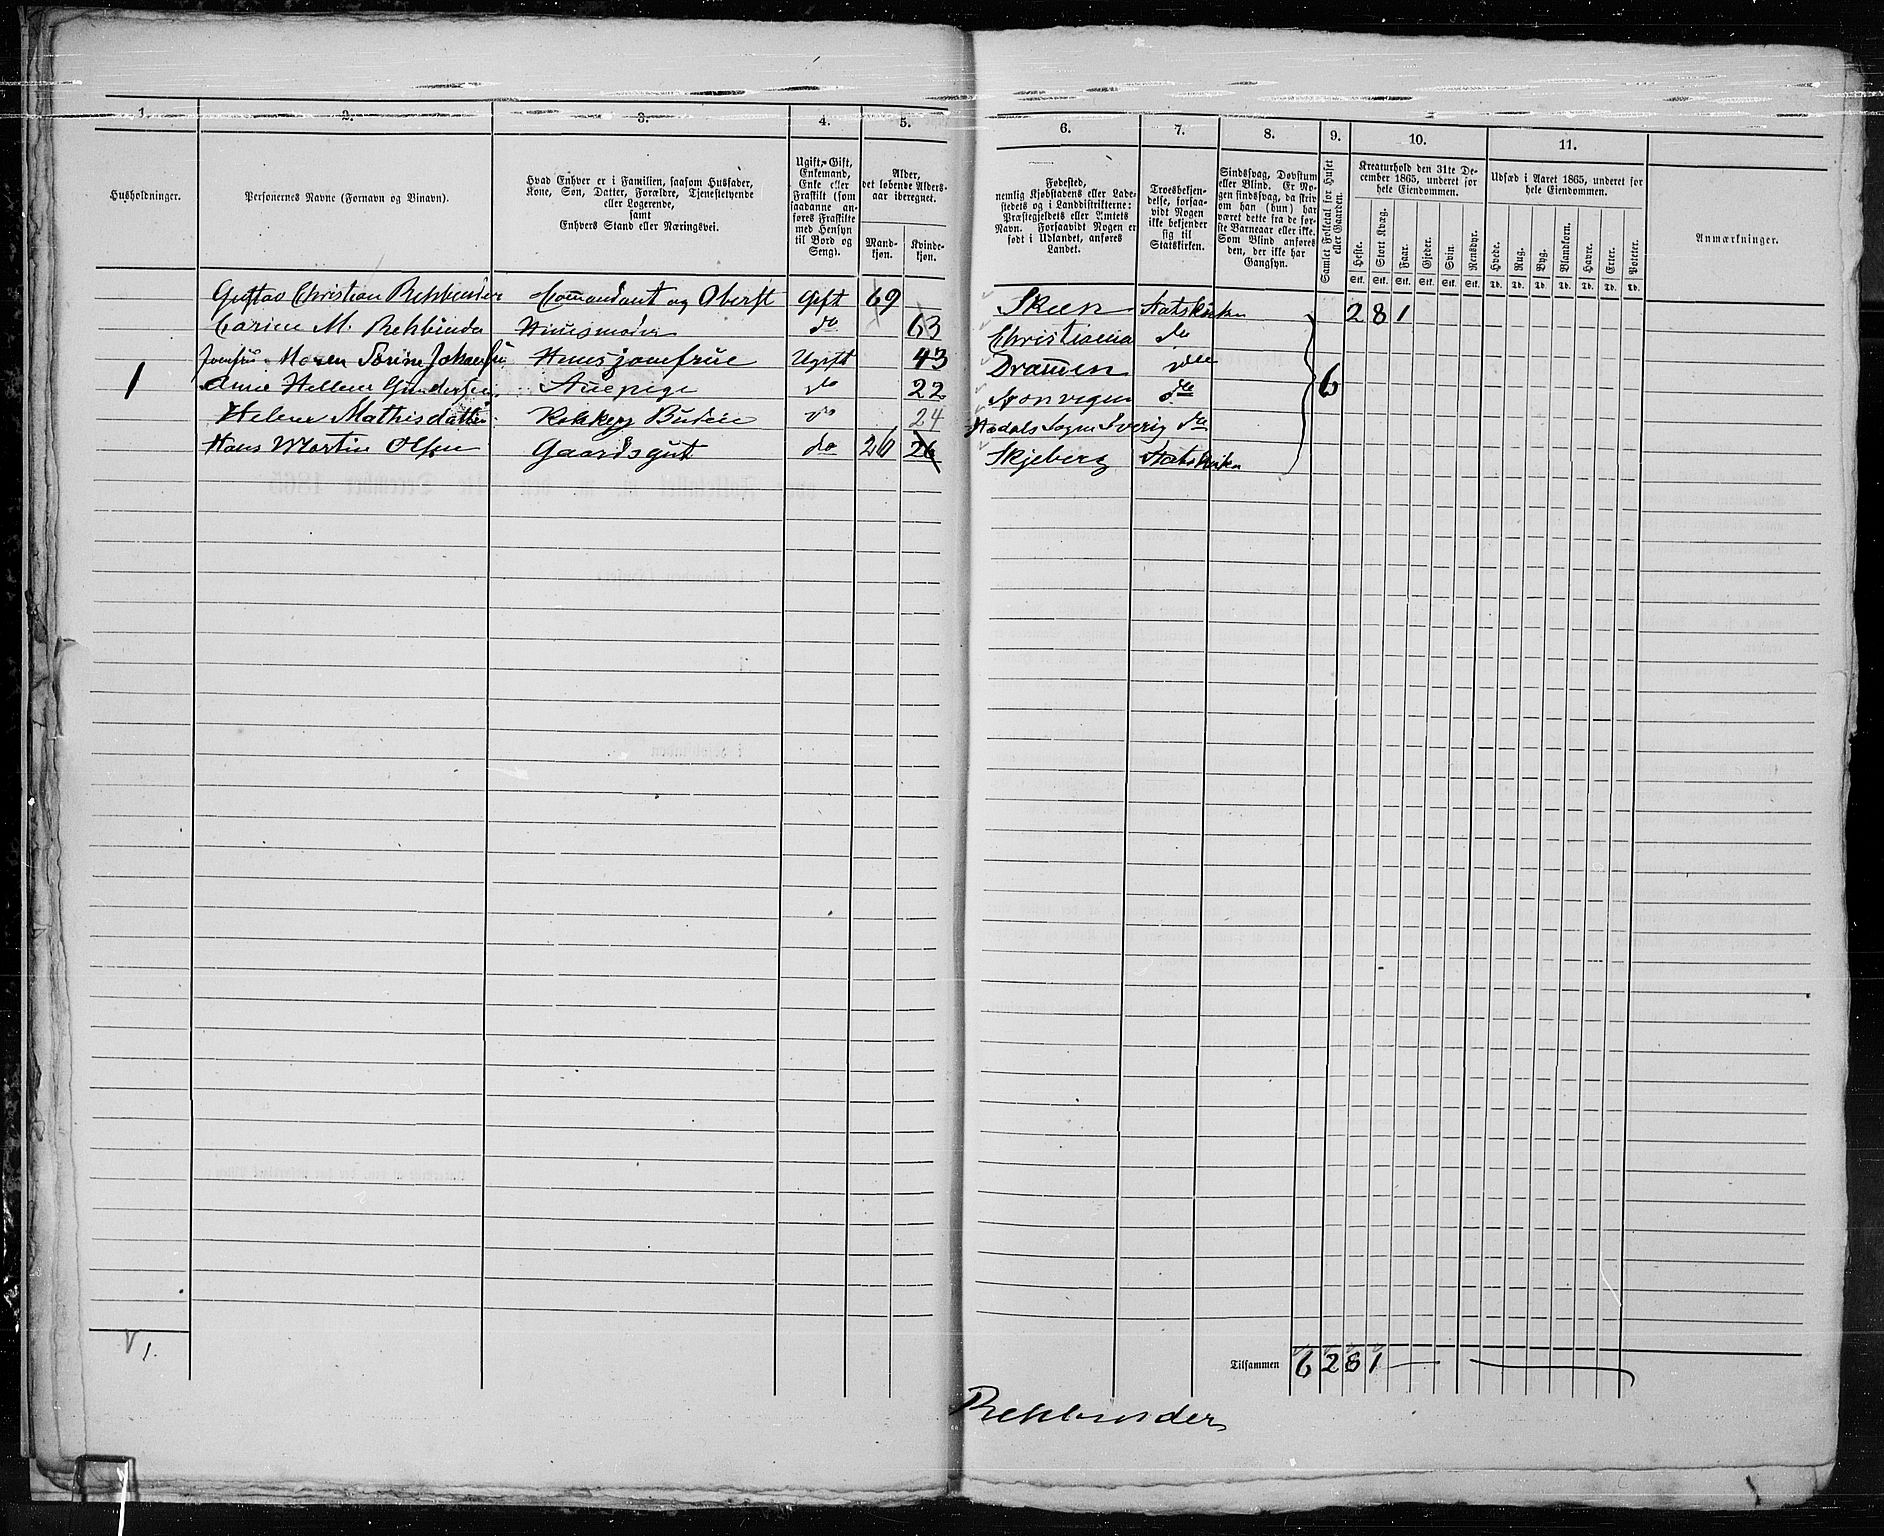 1. 2. 3. 4. 5. 6. 7. 8. 9. 10. 11.
Husholdninger.
Personernes Navne (Fornavn og Binavn).
Hvad Enhver er i Familien, saasom Husfader,
Kone, Søn, Datter, Forældre, Tjenestetyende
eller Logerende,
samt
Enhvers Stand eller Næringsvei.
Ugift, Gift,
Enkemand,
Enke eller
Fraskilt (som
saadanne anføres Fraskilte
med Hensyn
til Bord og
Seng).
Alder,
det løbende Aldersaar iberegnet.
Mandkjøn.
Kvindekjøn.
Fødested,
nemlig Kjøbstadens eller Ladestedets og i Landdistrikterne:
Præstegjeldets eller Amtets
Navn. Forsaavidt Nogen er
født i Udlandet, anføres
Landet.
Troesbekjendelse, forsaavidt Nogen
ikke bekjender
sig til
Statskirken.
Sindssvag, Døvstum
eller Blind. Er Nogen sindssvag, da skrives
om han (hun) har
været dette fra de første Barneaar eller ikke.
Som Blind anføres
den, der ikke har
Gangsyn.
Samlet Folketal for Huset
eller Gaarden.
Kreaturhold den 31te December 1865, underet for
hele Eiendommen.
Heste. Stort Kvæg. Faar. Gjeder. Svin. Rensdyr.
Stk. Stk. Stk. Stk. Stk. Stk.
Udsæd i Aaret 1865, underet for
hele Eiendommen.
Hvede. Rug. Byg. Blandkorn. Havre. Erter. Poteter.
Td. Td. Td. Td. Td. Td. Td.
Anmærkninger.
Gustav Christian Rehbinder Commandant og Oberst Gift 69 Skeen Statskirken 2 8 1
Carine M. Rehbinder Huusmoder do 63 Christiania do
Jomfru Maren Sørine Johansen Huusjomfrue Ugift 43 Drammen do
1 Anne Hellene Gundersen Stuepige do 22 do 6
Helene Mathisdatter Kokke og Budeie do 24 Sogn Sverig do
Hans Martin Olsen Gaardsgut do 26 26 Skjeberg Statskirken
1.
Tilsammen 6 2 8 1
Rehbinder